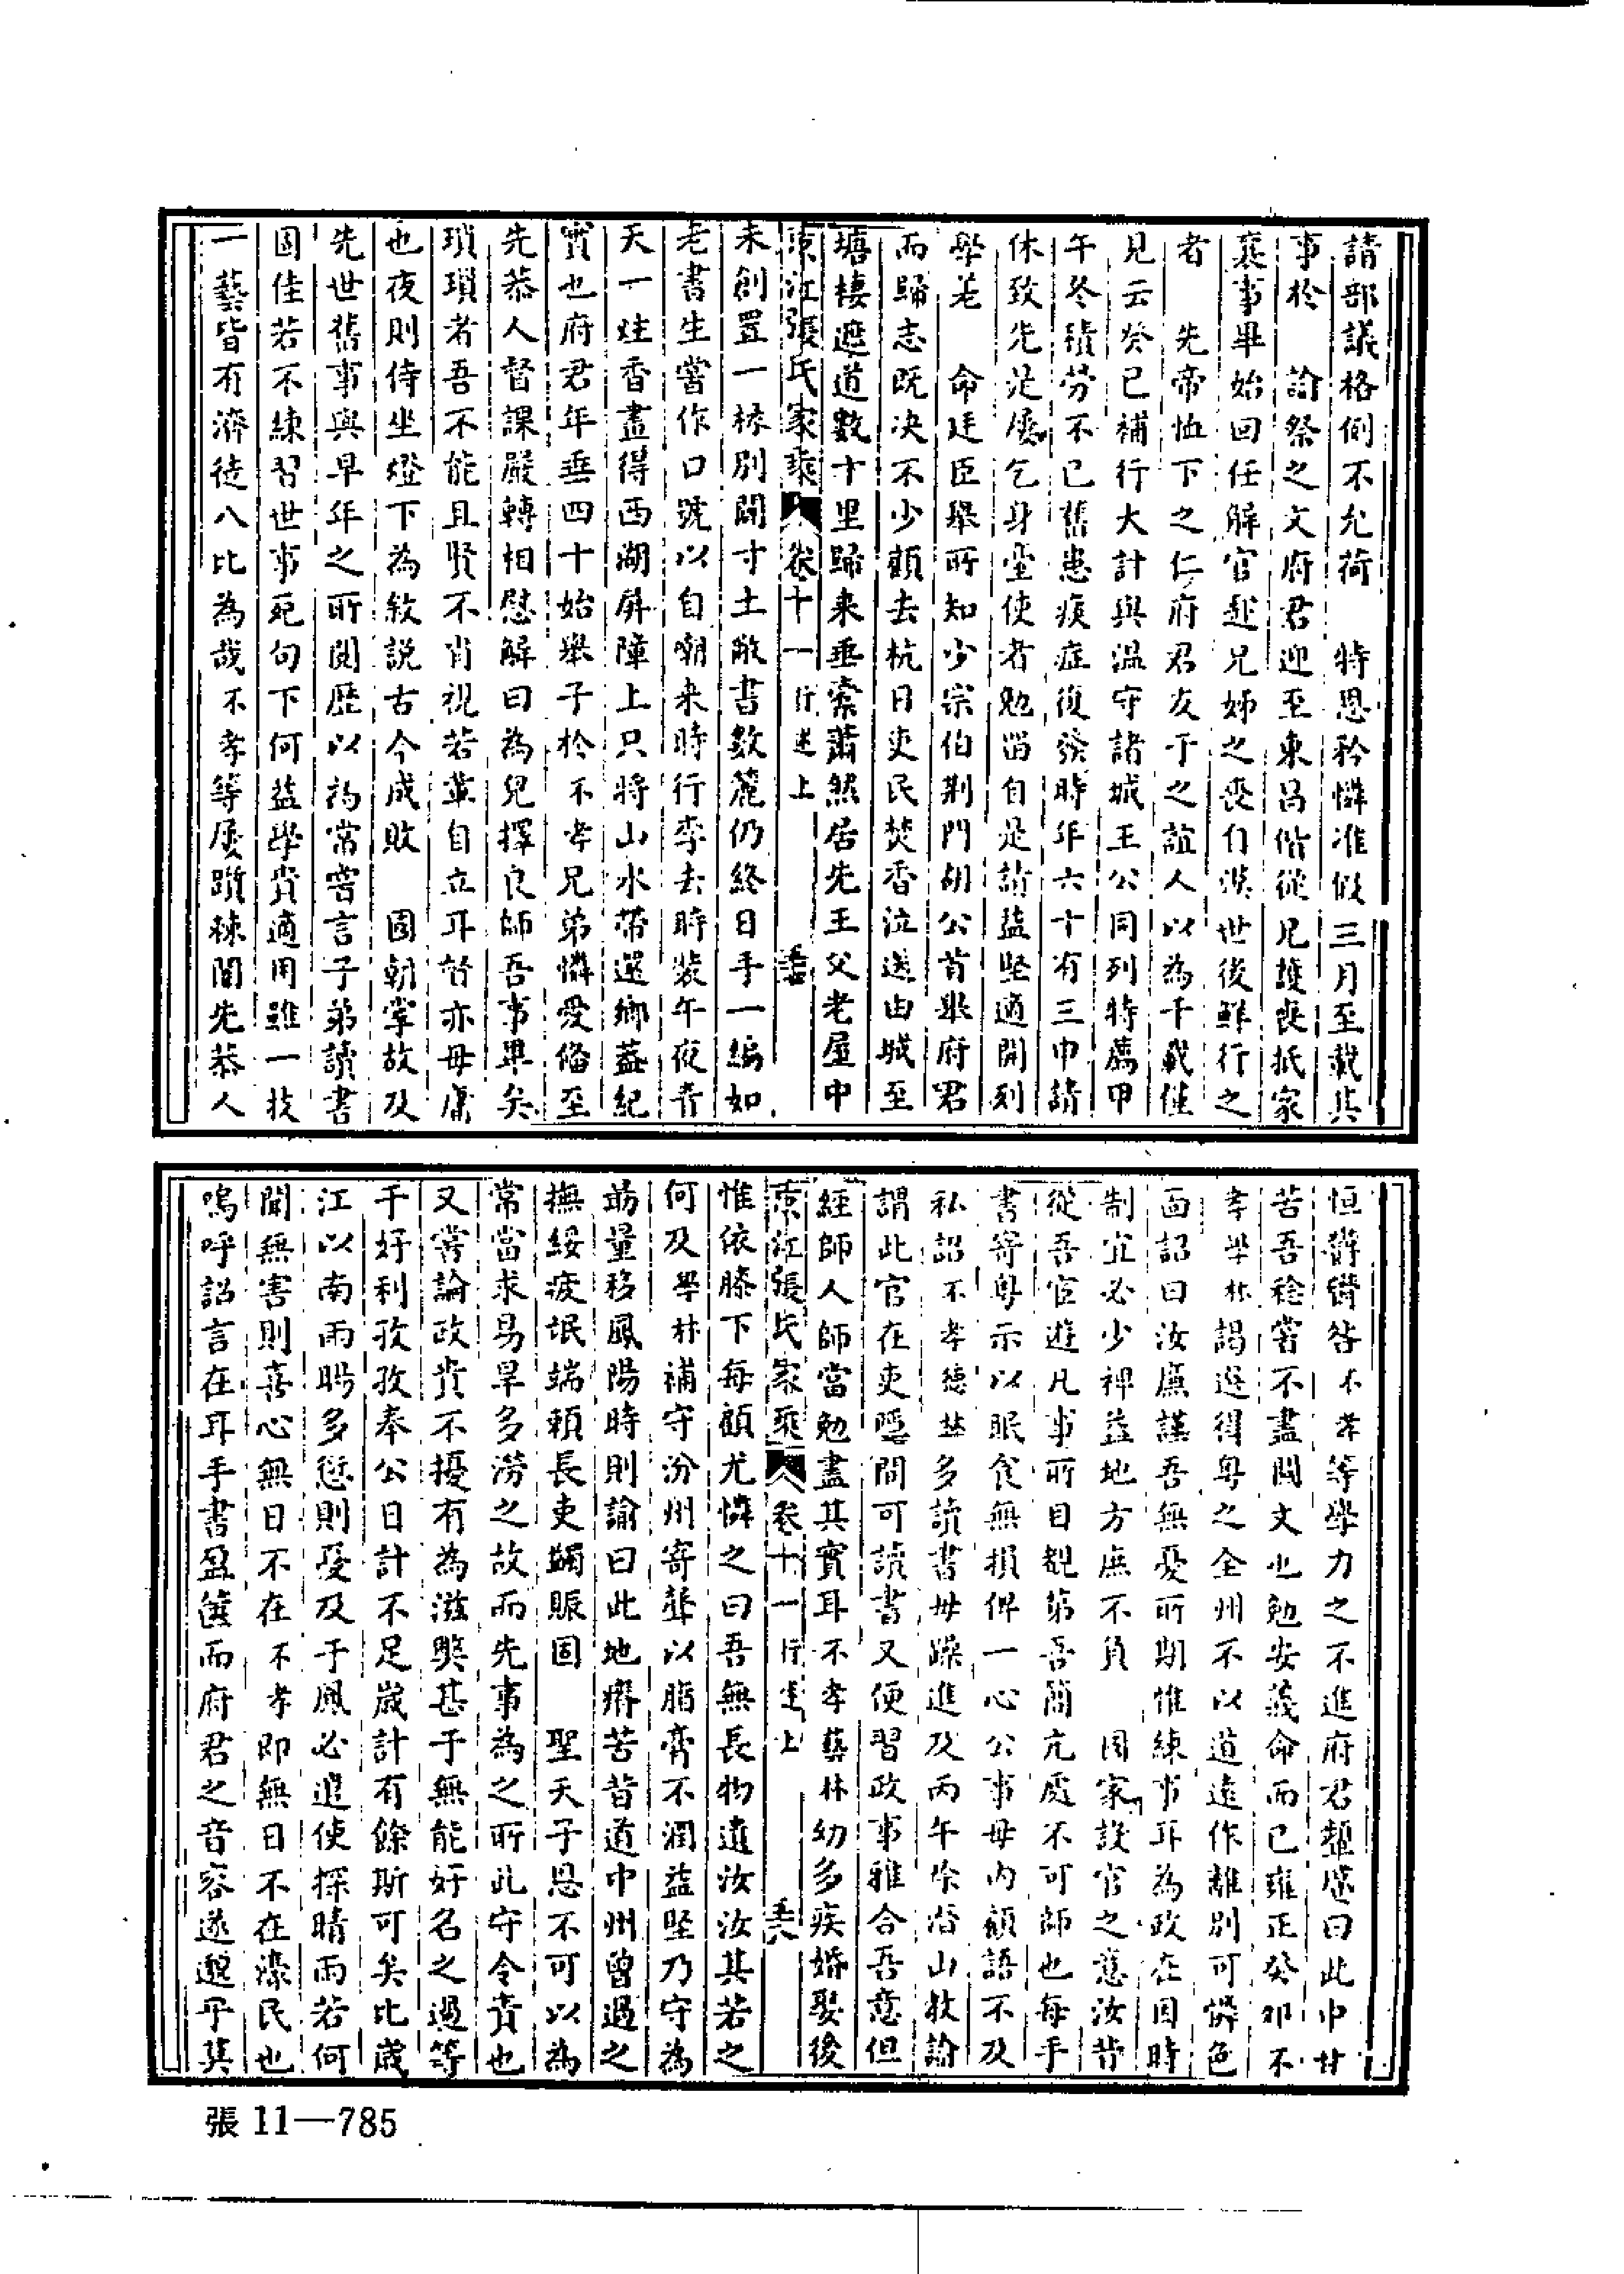 請部議格例不允荷　特恩矜憐准假三月至載其
事於　諭祭之文府君迎至東昌偕從兄護喪抵家
襄事畢始回任解官赴兄姊之喪自漢世後鮮行之
者　先帝恤下之仁府君友于之誼人以為千載僅
見云癸已補行大計與溫守諸城王公同列特薦甲
午冬積勞不已舊患痰症復發時年六十有三申請
休致先是屢乞身臺使者勉留自是請益堅適開列
學差　命廷臣舉所知少宗伯荆門胡公首舉府君
而歸志既决不少顧去杭日吏民焚香泣送由城至
塘棲遮道數十里歸來垂橐蕭然居先王父老屋中
京江張氏家乘　卷十一　行述上
未創置一椽別闢寸土敝書數簏仍終日手一編如
老書生嘗作口號以自嘲來時行李去時裝午夜青
天一炷香畫得西湖屏障上只將山水帶還鄉葢紀
實也府君年垂四十始舉子於不孝兄弟憐愛僃至
先恭人督課嚴轉相慰解曰為兒擇良師吾事畢矣
瑣瑣者吾不能且賢不肖視若輩自立耳督亦毋庸
也夜則侍坐燈下為敘説古今成敗　國朝掌故及
先世舊事與早年之所閲歷以為常嘗言子弟讀書
固佳若不練習世事死句下何益學貴適用雖一技
一藝皆有濟徒八比為哉不孝等屢躓棘闈先恭人
恒鬱鬱咎不孝等學力之不進府君顰蹙曰此中甘
苦吾稔嘗不盡關文也勉安義命而已雍正癸卯不
孝學林謁選得粤之全州不以道遠作離別可憐色
面詔曰汝廉謹吾無憂所期惟練事耳為政在因時
制宜必少裨益地方庶不負　國家設官之意汝昔
從吾宦遊凡事所目覩第吾簡亢處不可師也每手
書寄粤示以眠食無損俾一心公事毋内顧語不及
私詔不孝德林多讀書毋躁進及丙午除含山教諭
謂此官在吏隱間可讀書又便習政事雅合吾意但
經師人師當勉盡其實耳不孝藝林幼多疾婚娶後
京江張氏家乘　卷十一　行述上
惟依膝下每顧尤憐之曰吾無長物遺汝汝其若之
何及學林補守汾州寄聲以脂膏不潤益堅乃守為
勗量移鳳陽時則諭曰此地瘠苦昔道中州曾過之
撫綏疲氓端賴長吏蠲賑固　聖天子恩不可以為
常當求易旱多澇之故而先事為之所此守令責也
又嘗論政貴不擾有為滋獘甚于無能好名之過等
于好利孜孜奉公日計不足歲計有餘斯可矣比歲
江以南雨暘多愆則憂及于鳳必遣使探晴雨若何
聞無害則喜心無日不在不孝即無日不在濠民也
嗚呼詔言在耳手書盈篋而府君之音容遂邈乎莫
張 11—785